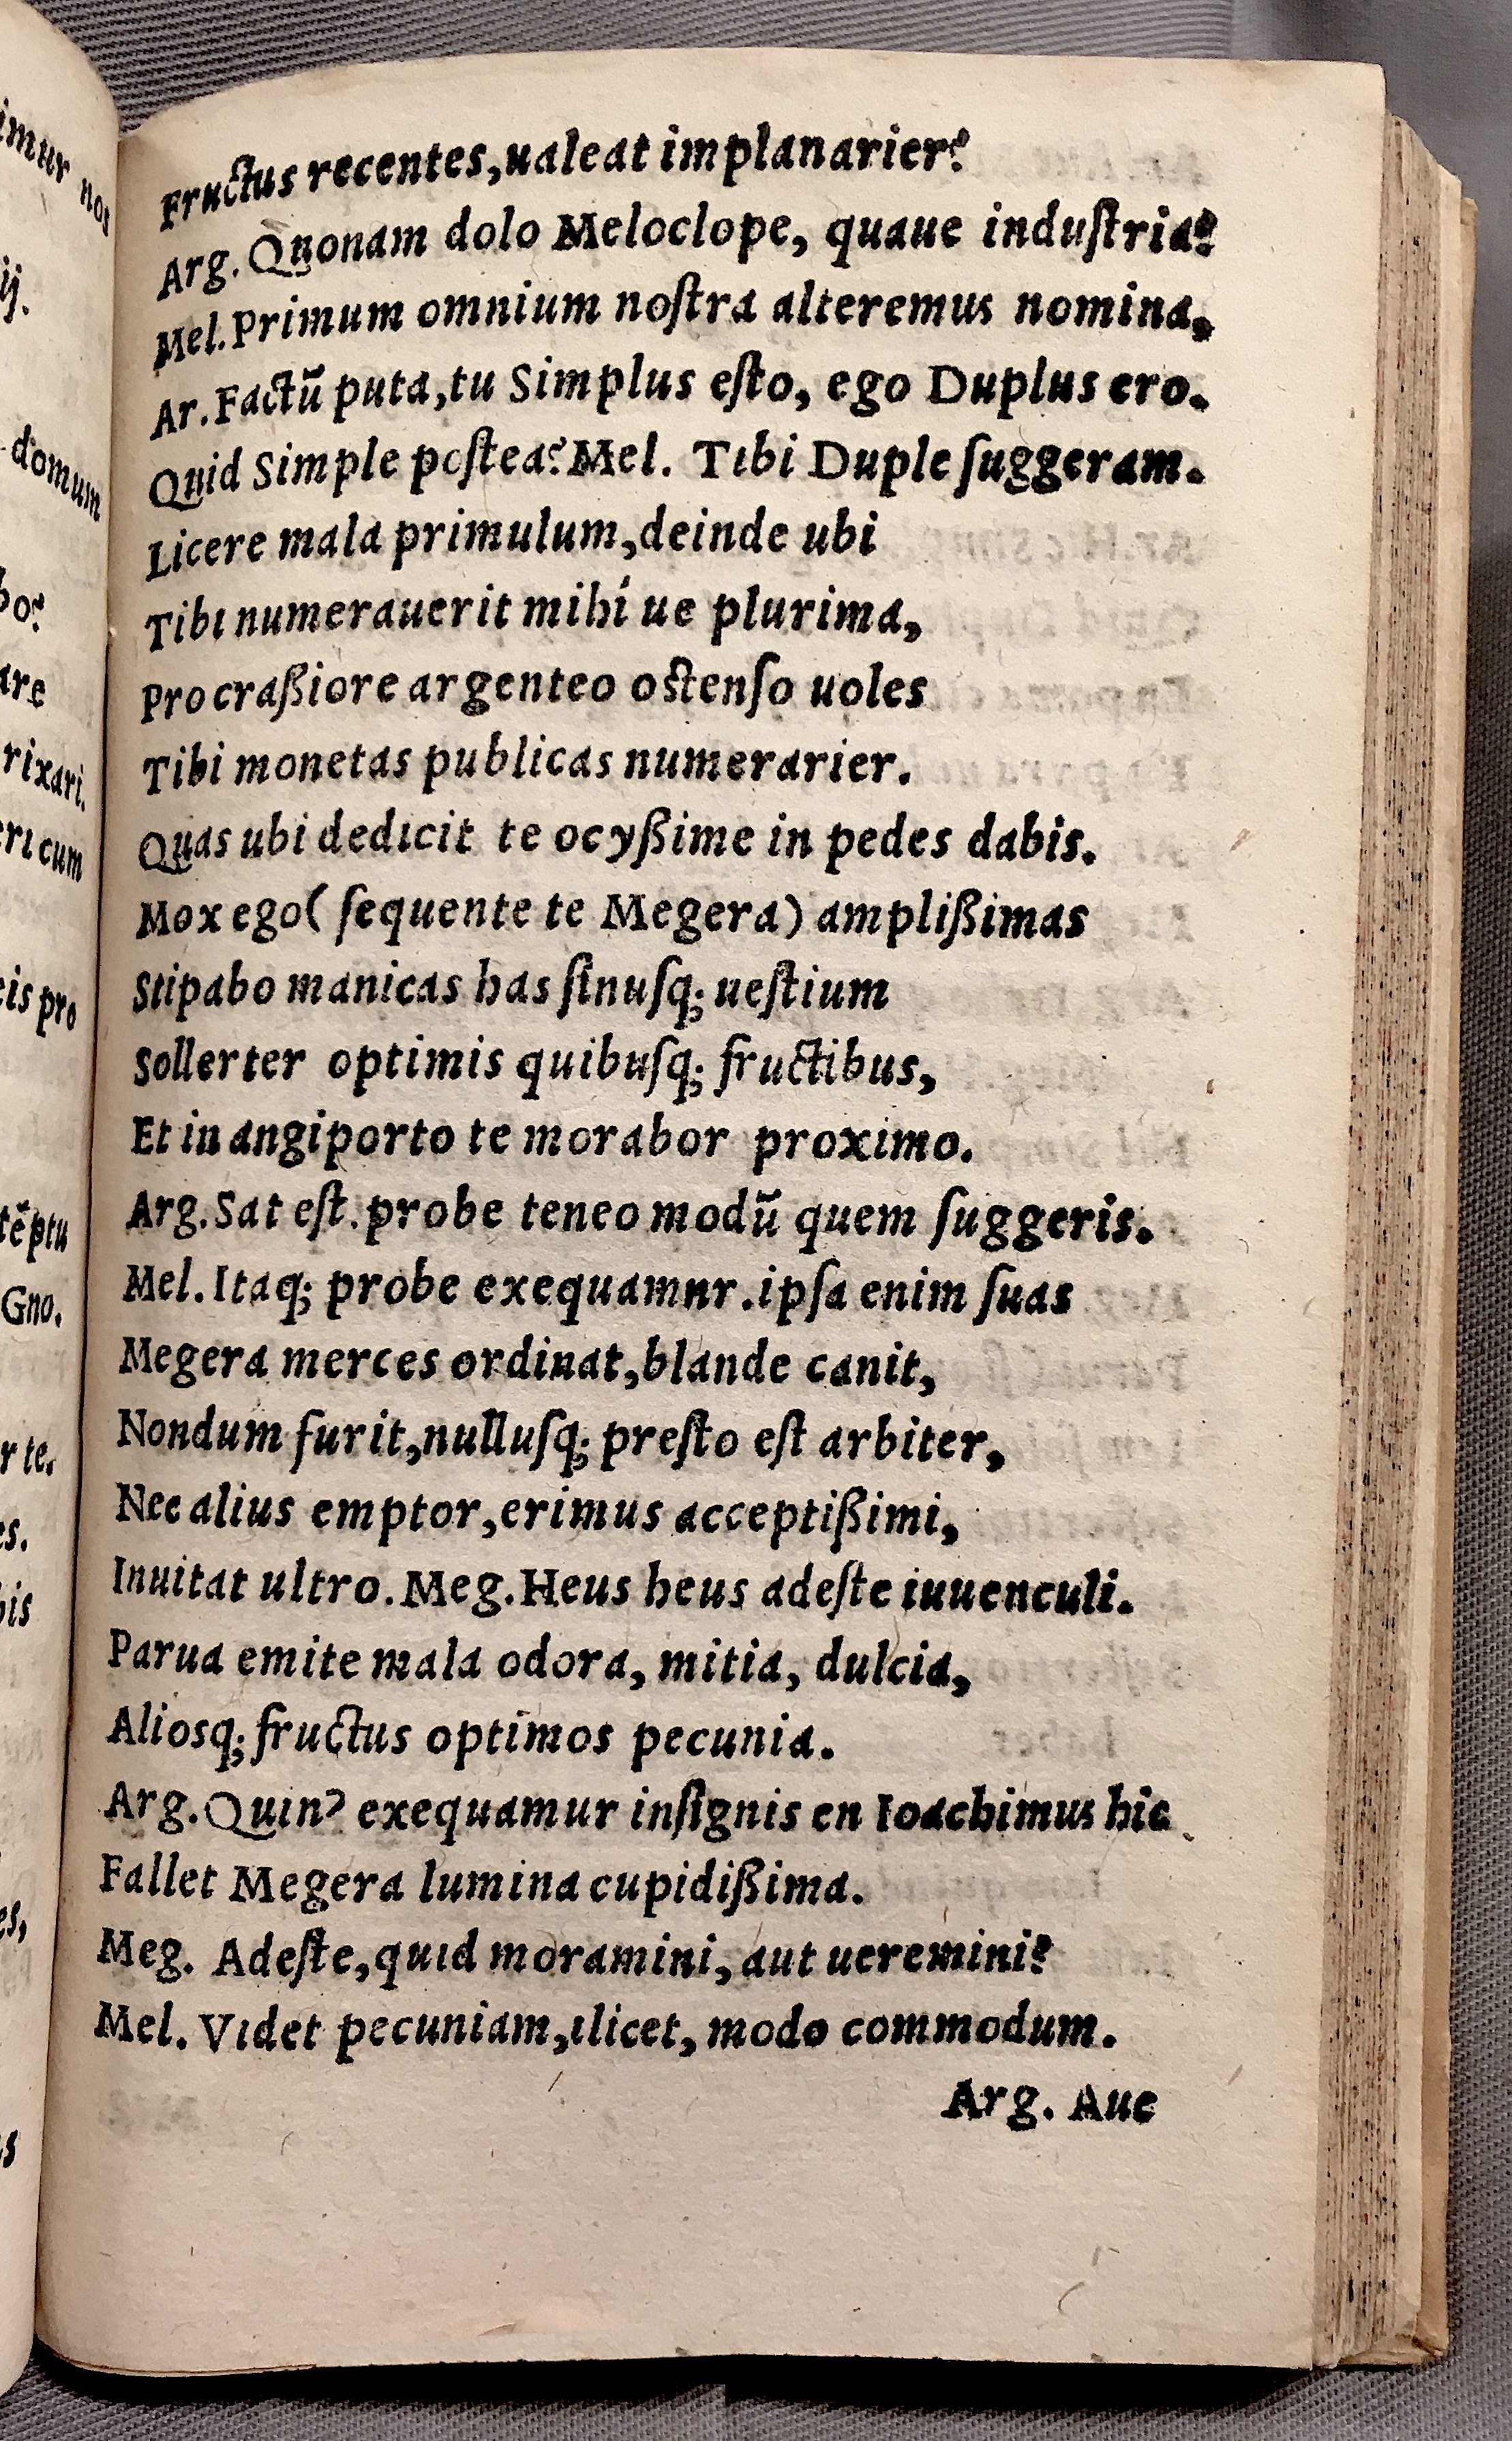 imur nos
ij.
domum
bo?
are
rixari.
eri cum
eis pro
tẽptu
Gno.
r te.
es.
bis
es,
Fructus recentes,ualeat implanarier?
Arg. Quonam dolo Meloclope, quaue induſtria?
Mel.Primum omnium noſtra alteremus nomina,
Ar.Factũ puta,tu Simplus eſto, ego Duplus ero.
Quid Simple poſtea?Mel. Tibi Duple ſuggeram.
Licere mala primulum,deinde ubi
Tibi numerauerit mihí ue plurima,
Pro craßiore argenteo oſtenſo uoles
Tibi monetas publicas numerarier.
Quas ubi dedicit te ocyßime in pedes dabis.
Mox ego( ſequente te Megera) amplißimas
Stipabo manicas has ſinuſq; ueſtium
Sollerter optimis quibuſq; fructibus,
Et in angiporto te morabor proximo.
Arg.Sat eſt.probe teneo modũ quem ſuggeris.
Mel.Itaq; probe exequamnr.ipſa enim ſuas
Megera merces ordinat,blande canit,
Nondum furit,nulluſq; preſto eſt arbiter,
Nec alius emptor,erimus acceptißimi,
Inuitat ultro.Meg.Heus heus adeſte iuuenculi.
Parua emite mala odora, mitia, dulcia,
Aliosq; fructus optimos pecunia.
Arg.Quin? exequamur inſignis en Ioachimus hic
Fallet Megera lumina cupidißima.
Meg. Adeſte,quid moramini,aut ueremini?
Mel. Videt pecuniam,ilicet, modo commodum.
Arg. Aue